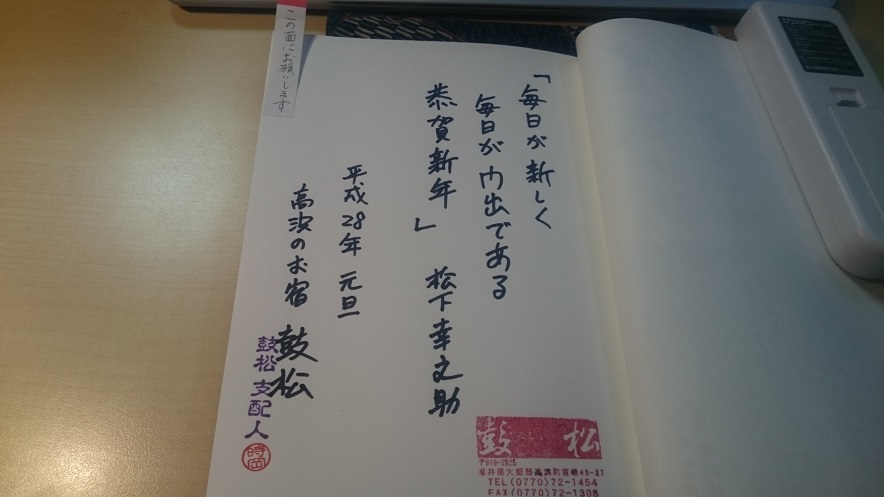 この面にお願いします
「毎日が新しく
毎日が門出である
恭賀新年」 松下幸之助
平成28年 元旦
高浜のお宿 鼓松
鼓松 支配人
時岡
鼓 松
〒919-2225
福井県大飯郡高浜町宮崎43-27
TEL(0770)72-1454
FAX(0770)72-1308